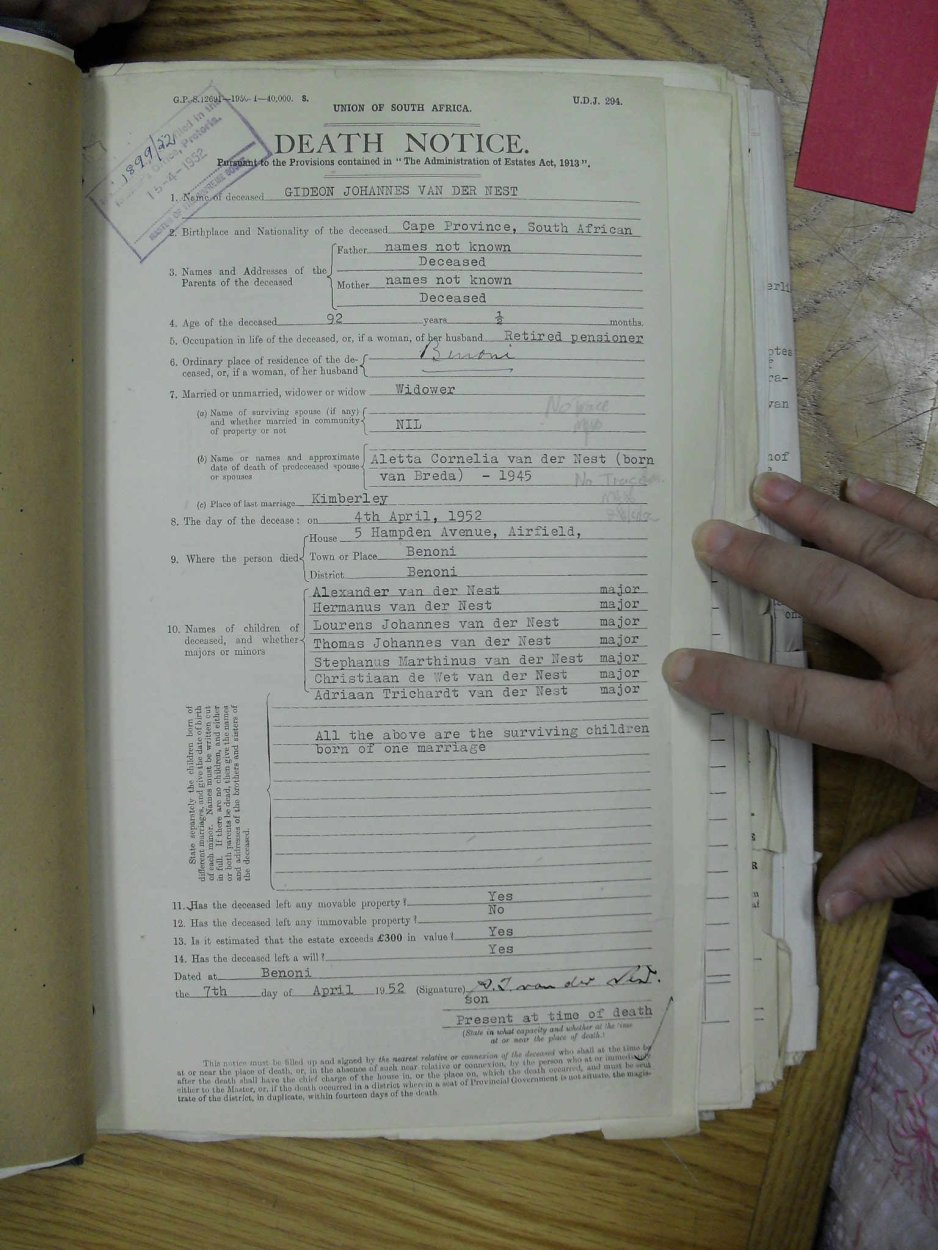 G.P.-S.12691—195 -1—40,000. S.
U.D.J. 294.
UNION OF SOUTH AFRICA.
DEATH NOTICE.
Pursuant to the Provisions contained in "The Administration of Estates Act, 1913".
1899/52
Pretoria.
15-4-1952
MASTER OF THE SUPREME COURT
1. Name of deceased GIDEON JOHANNES VAN DER NEST
2. Birthplace and Nationality of the deceased Cape Province, South African
3. Names and Addresses of the Parents of the deceased
Father names not known
Deceased
Mother names not known
Deceased
4. Age of the deceased 92 years ½ months.
5. Occupation in life of the deceased, or, if a woman, of her husband Retired pensioner
6. Ordinary place of residence of the de-
ceased, or, if a woman, of her husband
Benoni
7. Married or unmarried, widower or widow Widower
(a) Name of surviving spouse (if any)
and whether married in community
of property or not
NIL
No Trace
(b) Name or names and approximate
date of death of predeceased spouse
or spouses
Aletta Cornelia van der Nest (born
van Breda) - 1945
No Trace
(c) Place of last marriage Kimberley
8. The day of the decease: on 4th April, 1952
9. Where the person died
House 5 Hampden Avenue, Airfield,
Town or Place Benoni
District Benoni
10. Names of children of
deceased, and whether
majors or minors
Alexander van der Nest major
Hermanus van der Nest major
Lourens Johannes van der Nest major
Thomas Johannes van der Nest major
Stephanus Marthinus van der Nest major
Christiaan de Wet van der Nest major
Adriaan Trichardt van der Nest major
State separately the children born of
different marriages, and give the date of birth
of each minor. Names must be written out
in full. If there are no children, and either
or both parents be dead, then give the names
and addresses of the brothers and sisters of
the deceased.
All the above are the surviving children
born of one marriage
11. Has the deceased left any movable property? Yes
12. Has the deceased left any immovable property? No
13. Is it estimated that the estate exceeds £300 in value? Yes
14. Has the deceased left a will? Yes
Dated at Benoni
the 7th day of April 1952 (Signature) van der Nest.
son
Present at time of death
(State in what capacity and whether at the time
at or near the place of death.)
This notice must be filled up and signed by the nearest relative or connexion of the deceased who shall at the time be
at or near the place of death, or, in the absence of such near relative or connexion, by the person who at or immediately
after the death shall have the chief charge of the house in, or the place on, which the death occurred, and must be sent
either to the Master, or, if the death occurred in a district where in a seat of Provincial Government is not situate, the magis-
trate of the district, in duplicate, within fourteen days of the death